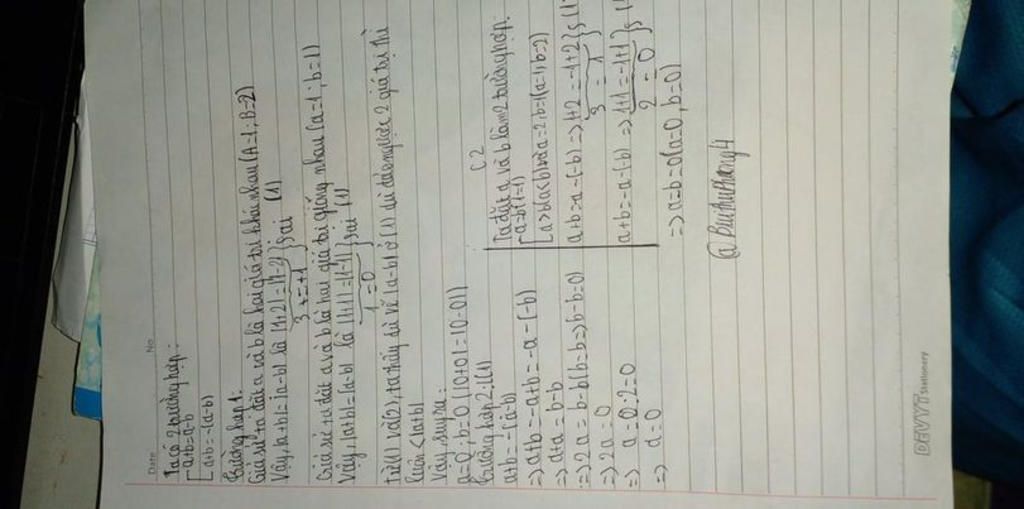 Date
No
Ta có 2 trường hợp:
[a+b=a-b
[a+b=-(a-b)
Trường hợp 1:
Giả sử ta đặt a và b là hai giá trị khác nhau (A=1; B=2)
Vậy, |a+b|=|a-b| là |1+2|=|1-2| } sai (1)
3 ≠ 1
Giả sử ta đặt a và b là hai giá trị giống nhau (a=1; b=1)
Vậy, |a+b|=|a-b| là |1+1|=|1-1| } sai (1)
1=0
Từ (1) và (2), ta thấy dù vế |a-b| ở (1) dù đảo ngược 2 giá trị thì
luôn <|a+b|
Vậy suy ra:
a=0, b=0 (|0+0|=|0-0|)
Trường hợp 2:
a+b=-(a-b)
=> a+b=-a+b=-a-(-b)
=> a+a=b-b
=> 2a=b-b(b=b=>b-b=0)
=> 2a=0
=> a=0:2=0
=> a=0
C2
Ta đặt a và b làm 2 trường hợp.
[a=b(=1)
[a>b(a<b)
a+b=-a-(-b) => 1+2=-1+2 }
3 = 1
a+b=-a-(-b) => 1+1=-1+1 }
2 = 0
=> a=b=0(a=0, b=0)
@Buithuthang4
DEVYT Stationery